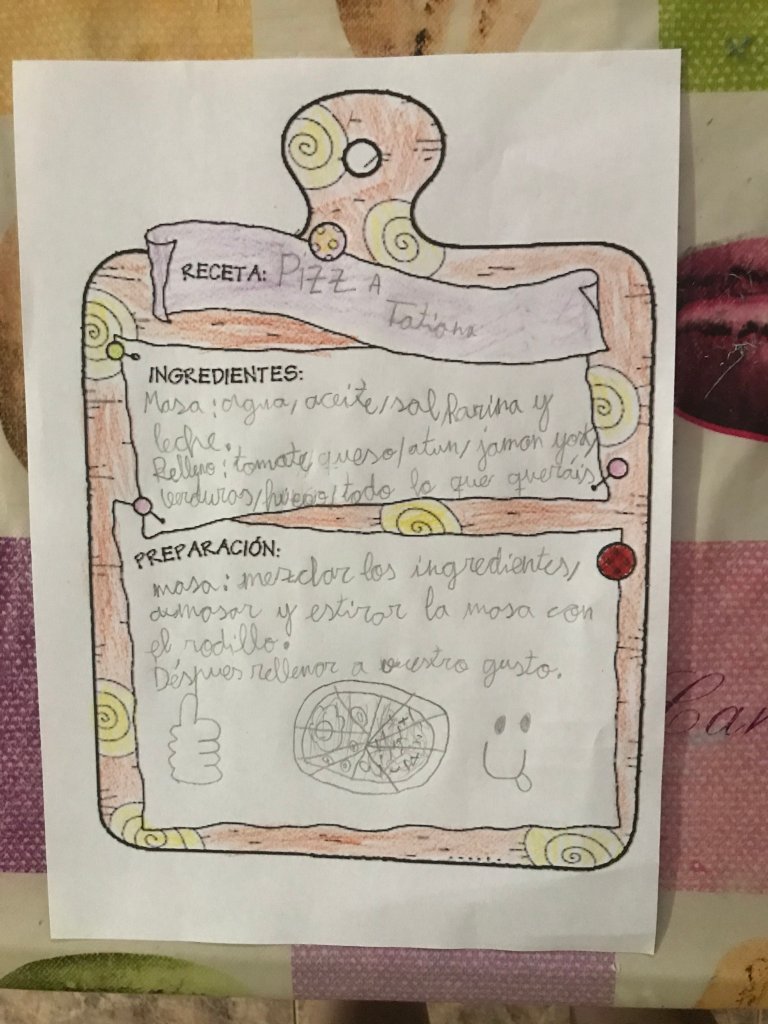 RECETA: PIZZA
Tatiana
INGREDIENTES:
Masa: agua, aceite, sal, harina y
leche.
Relleno: tomate, queso, atun, jamon york,
verduras, huevo, todo lo que queráis
PREPARACIÓN:
masa: mezclar los ingredientes,
amasar y estirar la masa con
el rodillo.
Déspues rellenar a vuestro gusto.
Car